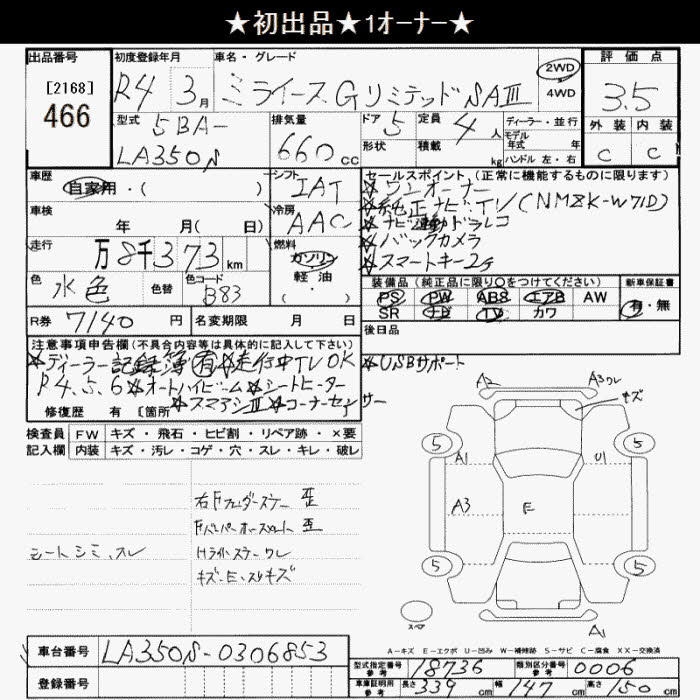 ★初出品★1オーナー★
出品番号
[2168]
466
初度登録年月
R4 3月
車名・グレード
ミライース G リミテッド SAⅢ
2WD
4WD
評価点
3.5
外装 内装
C C
型式
5BA-
LA350S
排気量
660 cc
ドア 5
形状
定員 4 人
積載 kg
ディーラー・並行
モデル
年式 年
ハンドル 左・右
車歴
自家用・( )
シフト
IAT
車検
年 月( 日)
冷房
AAC
走行
万 8千373 km
燃料
ガソリン
軽油
・( )
色
水色
色替
色コード
B83
R券 7140 円
名変期限 月 日
セールスポイント(正常に機能するものに限ります)
☆ワンオーナー
☆純正ナビTV(NMZK-W71D)
☆ナビ連動ドラレコ
☆バックカメラ
☆スマートキー2ヶ
装備品(純正品に限り○をつけてください)
PS PW ABS エアB AW
SR ナビ TV カワ
新車保証書
有・無
後日品
注意事項申告欄(不具合内容等は具体的に記入して下さい)
☆ディーラー記録簿(有)☆走行中TVOK ☆USBサポート
R4.5.6☆オートハイビーム☆シートヒーター
☆スマアシⅢ☆コーナーセンサー
修復歴 有 [箇所
検査員 FW キズ・飛石・ヒビ割・リペア跡・×要
記入欄 内装 キズ・汚レ・コゲ・穴・スレ・キレ・破レ
シートシミ、スレ
右Fフェンダーステー歪
Hライトステーワレ
キズ・E・スリキズ
A2 A3ワレ
キズ
5 5
A1 U1
A3 E
5 5
スペア
A1
A-キズ E-エクボ U-凹み W-補修跡 S-サビ C-腐食 XX-交換済
車台番号 LA350S-0306853
登録番号
型式指定番号 参考 18736 類別区分番号 参考 0006
車庫証明用 参考 長さ 339 cm 幅 147 cm 高さ 150 cm